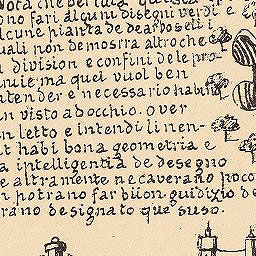 ono fari alcuni disegni verdi e
alcune pianta de dearboseli i
uali non demostra altro che
division e confini dele pro-
nuie, ma quei vuol ben
ntender e necessario habui
n visto ad occhio. over
n letto e intendi li nen-
t habi bona geometria e
a intelligentia de desegno
e altramente ne caverano poco
n potrano far buon guidizio de
rano designato que suso.